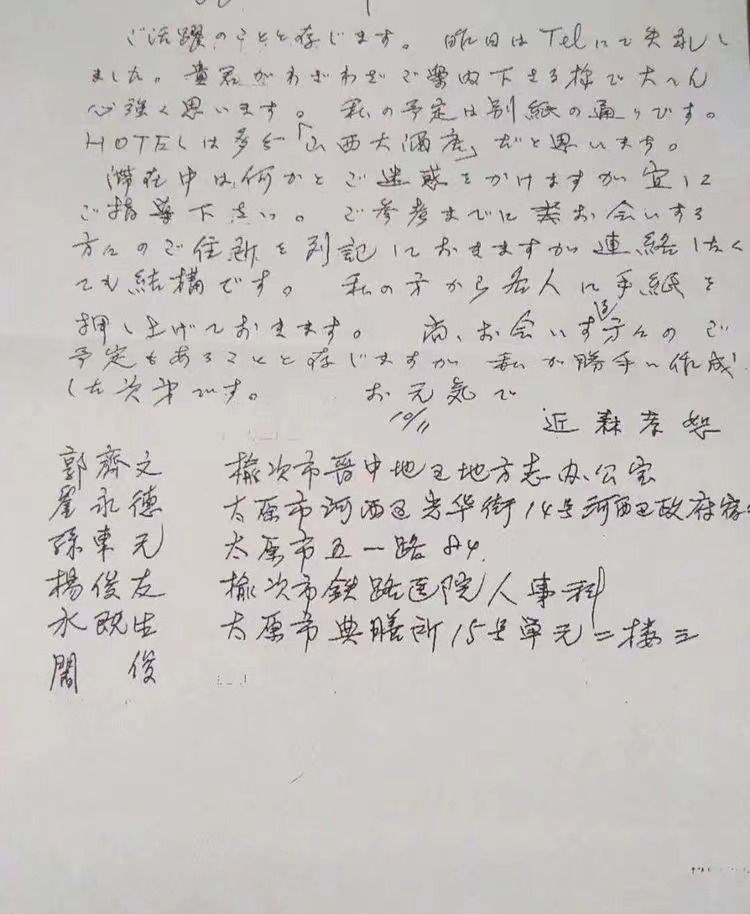 ご活躍のことと存じます。昨日はTelにて失礼し
ました。貴君がわざわざご案内下さる様で大へん
心強く思います。私の予定は別紙の通りです。
HOTELは多分「山西大酒店」だと思います。
滞在中は何かとご迷惑をかけますが宜しく
ご指導下さい。ご参考までに お会いする
方々のご住所を列記しておきますが連絡しなく
ても結構です。私の方から各人に手紙を
押し上げておきます。尚、お会いする方々のご
予定もあることと存じますが 私が勝手に作成
した次第です。お元気で
10/11 近森 恕
郭齊文 榆次市晋中地区地方志办公室
永德 太原市河西区光华街14号河西区政府宿
孫東元 太原市五一路84
楊俊友 榆次市铁路医院人事科
水既生 太原市典膳所15号单元二楼三
閻俊